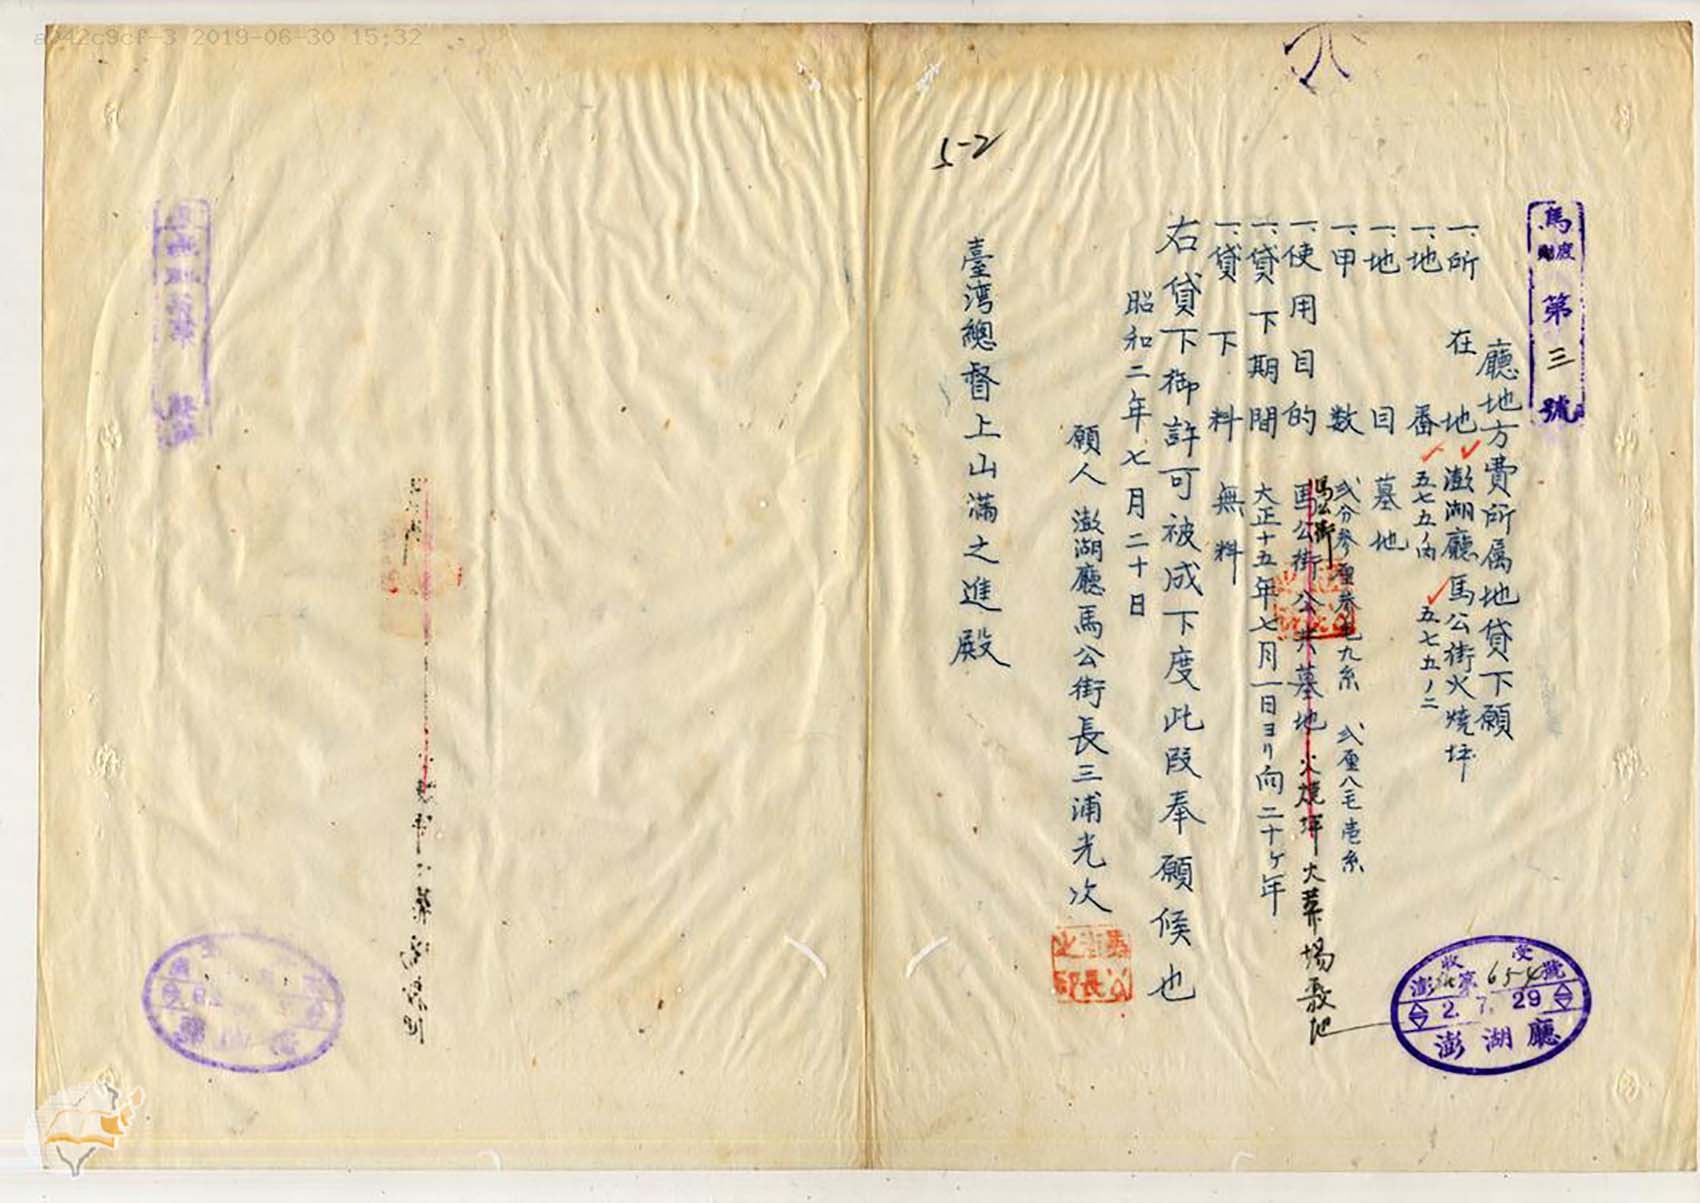 a942c9cf-3 2019-06-30 15:32
5-2
馬庶財 第三號
廳地方費所属地貸下願
一、所在地 澎湖廳馬公街火燒坪
一、地番 五七五ノ内 五七五ノ二
一、地目 墓地
一、甲数 弍分參厘參毛九糸 弍厘八毛壱糸
一、使用目的 馬公街公共墓地 火燒坪火葬場敷地
馬公街
一、貸下期間 大正十五年七月一日ヨリ向二十ケ年
一、貸下料 無料
右貸下御許可被成下度此段奉願候也
昭和二年七月二十日
願人 澎湖廳馬公街長三浦光次
臺湾總督上山滿之進殿
澎 654 號
2. 7. 29
澎湖廳